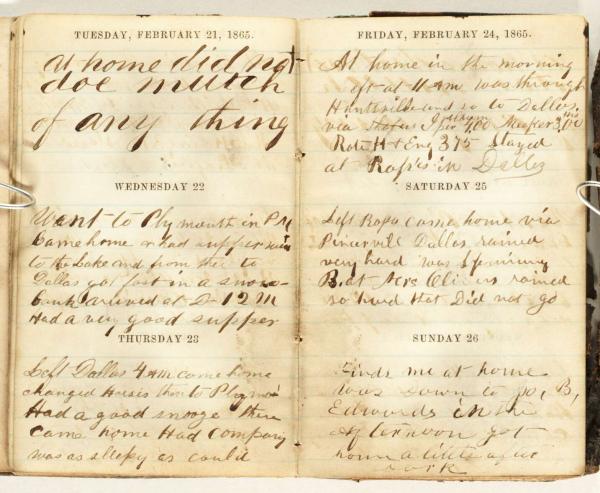 TUESDAY, FEBRUARY 21, 1865.
at home did not
doe mutch
of any thing
WEDNESDAY 22
Want to Plymouth in P M
Came home & had supper
to the Lake and from thee to
Dallas got fast in a snow-
bank arived at D- 12 M
Had a very good supper
THURSDAY 23
Left Dallas 4 AM came home
changed Horses then to Plymo
Had a good snooze there
came home Had Company
was as sleepy as could
FRIDAY, FEBRUARY 24, 1865.
At home in the morning
aft at 11 AM was through
Huntsville and so to Dallas
via 4,00 Meeker 3,00
Robt H & Eng 375 Stayed
at Rafs in Dallas
SATURDAY 25
Left Came home via
Dallas rained
very hard was
But Mrs Olivers rained
so hard that Did not go
SUNDAY 26
Finds me at home
Was down to B,
Edwards in the
afternoon got
home a little after